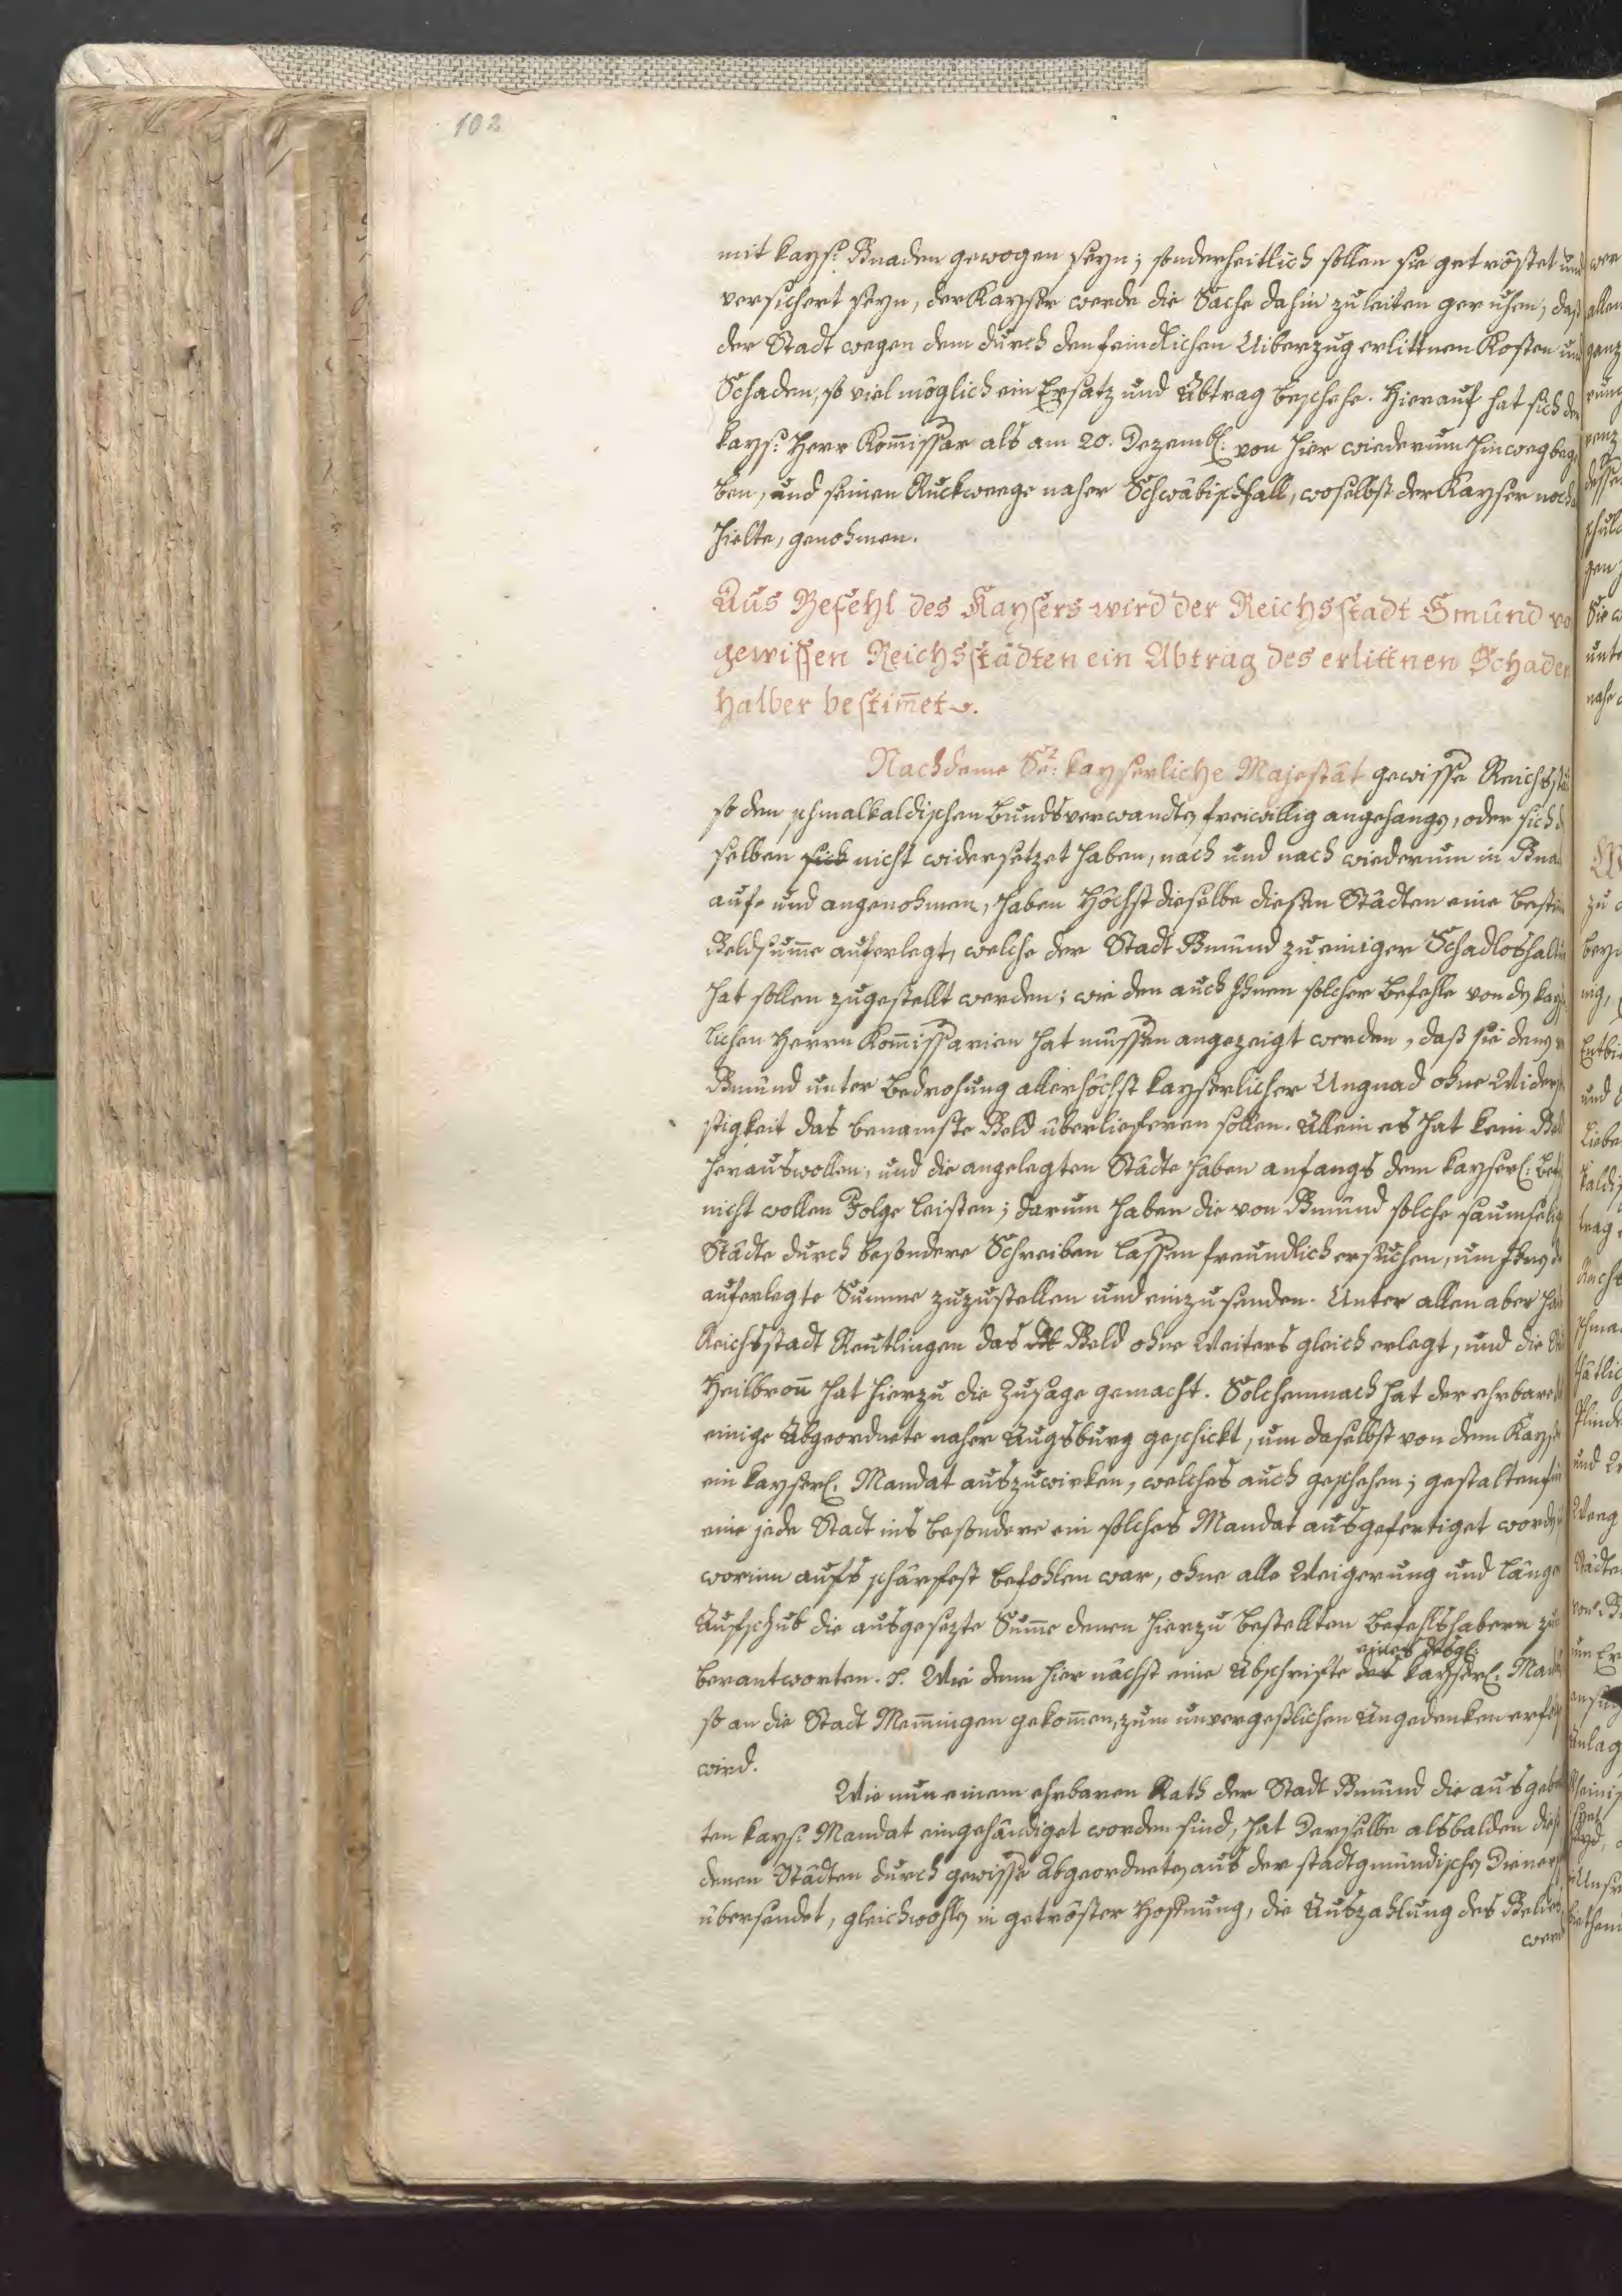 102
mit kays: Gnaden gewogen seyn; sonderheitlich sollen sie getröstet und
versichert seyn, der Kayser werde die Sache dahin zu leiten geruhen, daß
der Stadt wegen dem durch den feindlichen Uiberzug erlittnen Kosten und
Schaden, so viel möglich ein Ersatz und Abtrag beschehe. Hierauf hat sich der
kays: Herr Kom̄issar als am 20. Dezemb: von hier wiederum hinweg bege
ben, und seinen Ruckweege naher Schwäbischhall, woselbst der Kayser noch
hielte, genohmen.
Aus Befehl des Kaysers wird der Reichsstadt Gmünd vo
gewissen Reichsstädten ein Abtrag des erlittnen Schaden
halber bestim̄et.
Nachdeme Se: kayserliche Majestät gewisse Reichsstä
so den schmalkaldischen Bundsverwandten freiwillig angehangen, oder sich d
selben sich nicht widersetzet haben, nach und nach wiederum in Gna
auf- und angenohmen, haben Höchstdieselbe diesen Städten eine bestim
Geldsum̄e auferlegt, welche der Stadt Gmünd zu einiger Schadloshaltu
hat sollen zugestellt werden; wie den auch Ihnen solcher Befehle von den kays
lichen Herrn Kom̄issarien hat müssen angezeigt werden, daß sie denen v
Gmünd unter Bedrohung allerhöchst kayserlicher Ungnad ohne Widersp
stigkeit das benamste Geld überlieferen sollen. Allein es hat kein Gel
herauswollen, und die angelegten Städte haben anfangs dem kayserl: Bef
nicht wollen Folge leisten; darum haben die von Gmünd solche saumselig
Städte durch besondere Schreiben lassen freundlich ersuchen, um Ihnen d
auferlegte Summe zuzustellen und einzusenden. Unter allen aber ha
Reichsstadt Reutlingen das Geld ohne Weiters gleich erlegt, und die St
Heilbron̄ hat hierzu die Zusage gemacht. Solchemnach hat der ehrbare
einige Abgeordnete naher Augsburg geschickt, um daselbst von dem Kayse
ein kayserl: Mandat auszuwirken, welches auch geschehen; gestalten fü
eine jede Stadt ins besondere ein solches Mandat ausgefertiget worden
worinn aufs schärfest befohlen war, ohne alle Weigerung und länge
Aufschub die ausgesezte Sum̄e denen hierzu bestellten Befehlshabern zu
eines desgl:
berantworten. Wie denn hier nächst eine Abschrifte des kayserl: Man
so an die Stadt Mem̄ingen gekom̄en, zum unvergeßlichen Angedenken
wird.
Wie nun einem ehrbaren Rath der Stadt Gmünd die ausgebe
ten kays: Mandat eingehändiget worden sind, hat Derselbe alsbalden dies
denen Städten durch gewisse Abgeordneten aus der stadtgmündischen Diener
übersendet, gleichwohlen in getröster Hoffnung, die Auszahlung des Geldes
werd